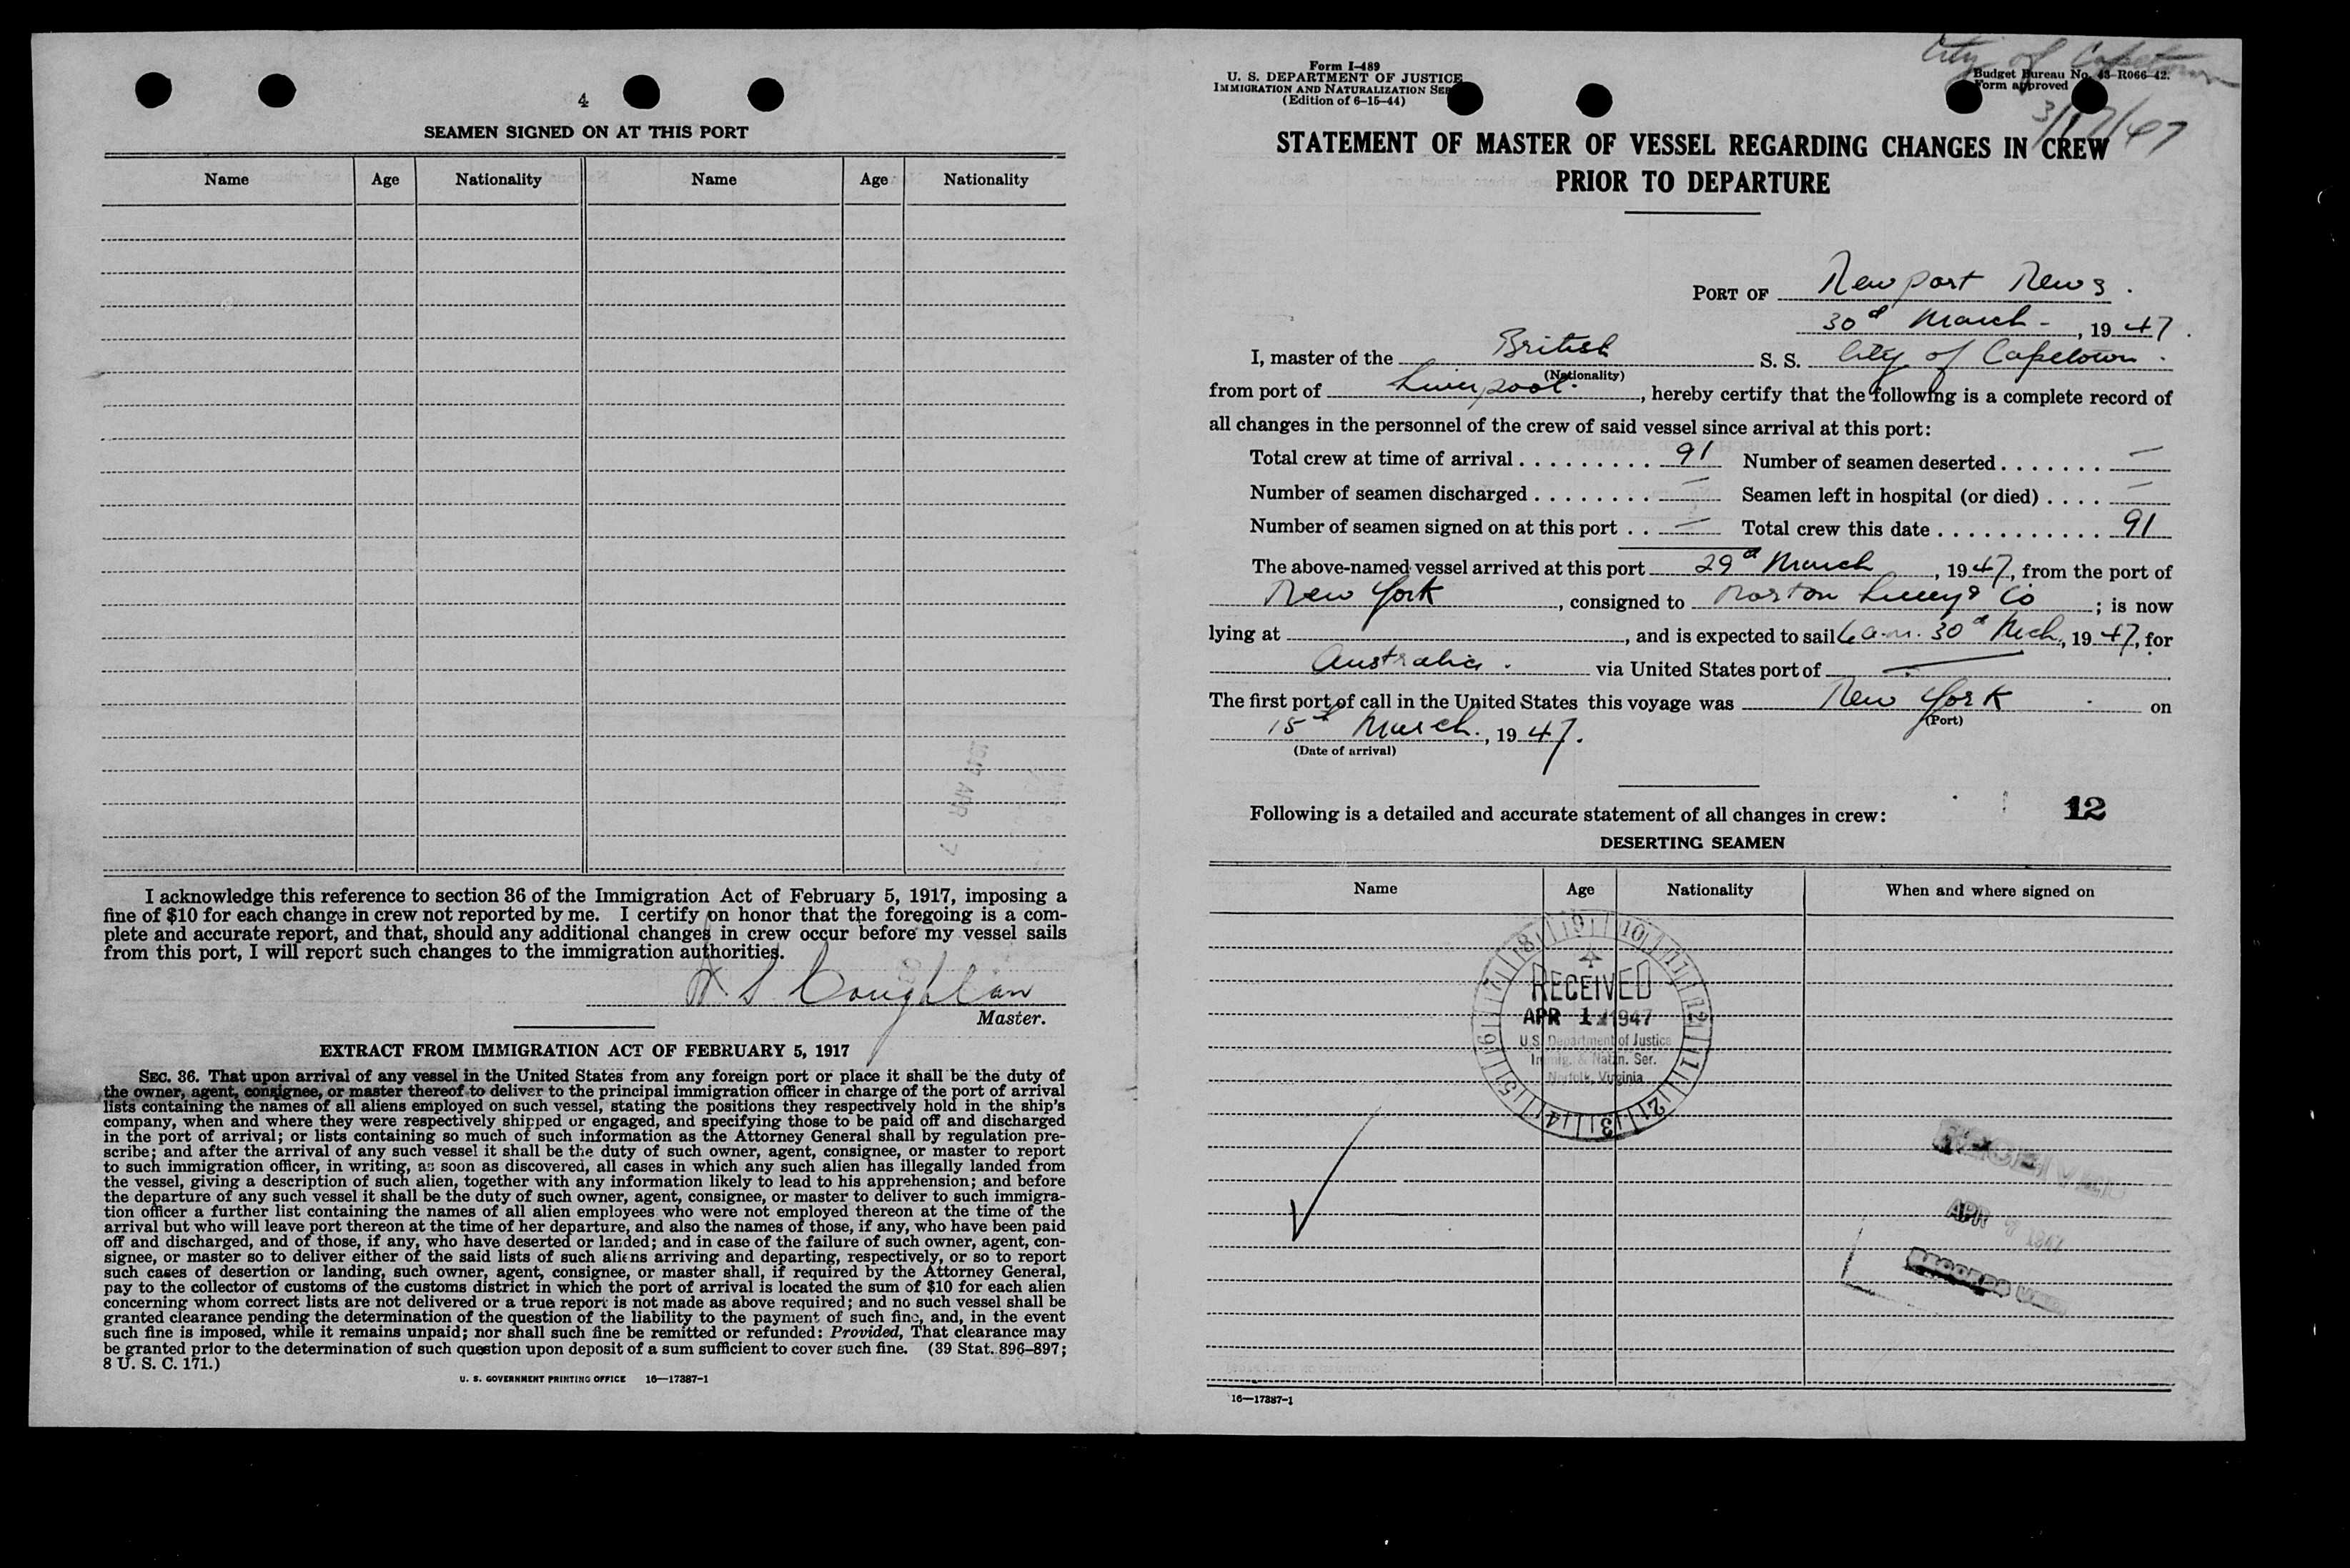 4
SEAMEN SIGNED ON AT THIS PORT
Name Age Nationality Name Age Nationality
I acknowledge this reference to section 36 of the Immigration Act of February 5, 1917, imposing a
fine of $10 for each change in crew not reported by me. I certify on honor that the foregoing is a com-
plete and accurate report, and that, should any additional changes in crew occur before my vessel sails
from this port, I will report such changes to the immigration authorities.
S Coughlan
Master.
EXTRACT FROM IMMIGRATION ACT OF FEBRUARY 5, 1917
SEC. 36. That upon arrival of any vessel in the United States from any foreign port or place it shall be the duty of
the owner, agent, consignee, or master thereof to deliver to the principal immigration officer in charge of the port of arrival
lists containing the names of all aliens employed on such vessel, stating the positions they respectively hold in the ship's
company, when and where they were respectively shipped or engaged, and specifying those to be paid off and discharged
in the port of arrival; or lists containing so much of such information as the Attorney General shall by regulation pre-
scribe; and after the arrival of any such vessel it shall be the duty of such owner, agent, consignee, or master to report
to such immigration officer, in writing, as soon as discovered, all cases in which any such alien has illegally landed from
the vessel, giving a description of such alien, together with any information likely to lead to his apprehension; and before
the departure of any such vessel it shall be the duty of such owner, agent, consignee, or master to deliver to such immigra-
tion officer a further list containing the names of all alien employees who were not employed thereon at the time of the
arrival but who will leave port thereon at the time of her departure, and also the names of those, if any, who have been paid
off and discharged, and of those, if any, who have deserted or landed; and in case of the failure of such owner, agent, con-
signee, or master so to deliver either of the said lists of such aliens arriving and departing, respectively, or so to report
such cases of desertion or landing, such owner, agent, consignee, or master shall, if required by the Attorney General,
pay to the collector of customs of the customs district in which the port of arrival is located the sum of $10 for each alien
concerning whom correct lists are not delivered or a true report is not made as above required; and no such vessel shall be
granted clearance pending the determination of the question of the liability to the payment of such fine, and, in the event
such fine is imposed, while it remains unpaid; nor shall such fine be remitted or refunded: Provided, That clearance may
be granted prior to the determination of such question upon deposit of a sum sufficient to cover such fine. (39 Stat. 896–897;
8 U. S. C. 171.)
U. S. GOVERNMENT PRINTING OFFICE 16—17387-1
City of Capetown
3/17/47
Form I-489
U. S. DEPARTMENT OF JUSTICE
IMMIGRATION AND NATURALIZATION SER
(Edition of 6-15-44)
Budget Bureau No. 43-R066-42.
Form approved
STATEMENT OF MASTER OF VESSEL REGARDING CHANGES IN CREW
PRIOR TO DEPARTURE
PORT OF Newport News.
30d March - , 1947.
I, master of the British S. S. City of Capetown.
(Nationality)
from port of Liverpool., hereby certify that the following is a complete record of
all changes in the personnel of the crew of said vessel since arrival at this port:
Total crew at time of arrival . . . . . . . . . 91 Number of seamen deserted . . . . . . . —
Number of seamen discharged . . . . . . . . — Seamen left in hospital (or died) . . . . —
Number of seamen signed on at this port . . — Total crew this date . . . . . . . . . . . 91
The above-named vessel arrived at this port 29d March, 1947, from the port of
New York, consigned to Norton Lilly & Co; is now
lying at , and is expected to sail 6 a.m. 30d Mch, 1947, for
Australia. via United States port of —
The first port of call in the United States this voyage was New York. on
(Port)
15th March., 1947.
(Date of arrival)
Following is a detailed and accurate statement of all changes in crew: 12
DESERTING SEAMEN
Name Age Nationality When and where signed on
RECEIVED
APR 1 1947
U.S. Department of Justice
Immig. & Natzn. Ser.
Norfolk, Virginia
RECEIVED
APR 1947
16—17387-1